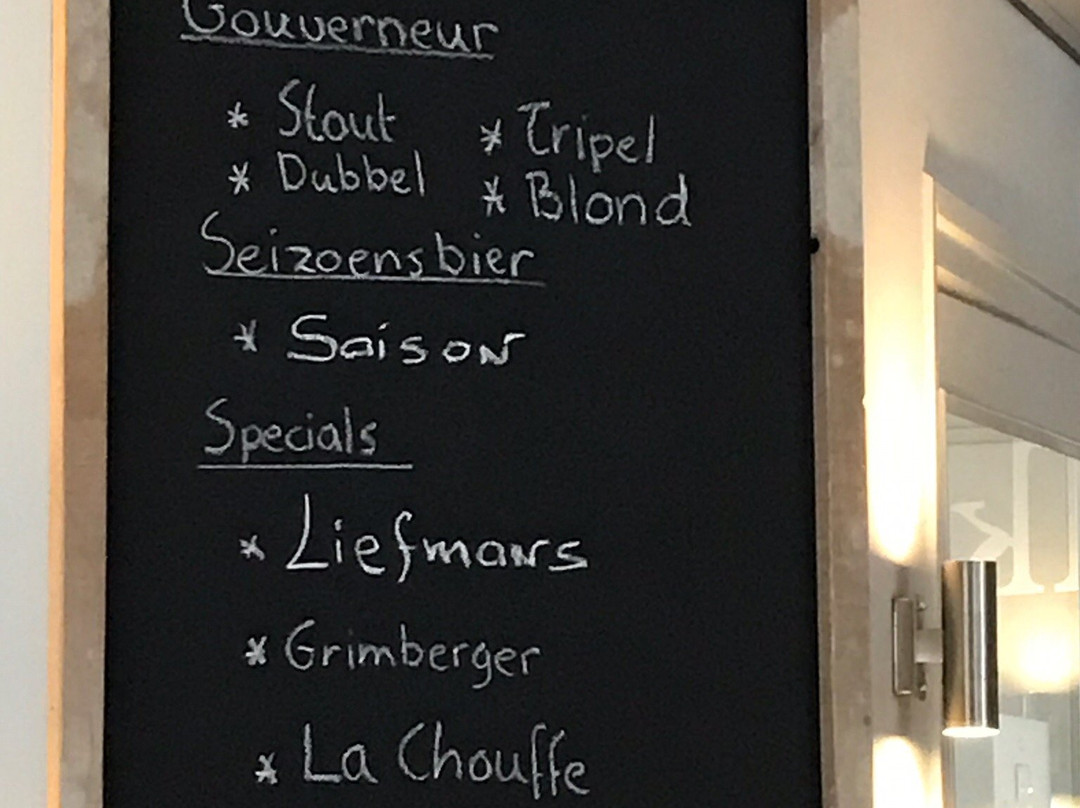 Gouverneur
* Stout * Tripel
* Dubbel * Blond
Seizoensbier
* Saison
Specials
* Liefmans
* Grimberger
* La Chouffe